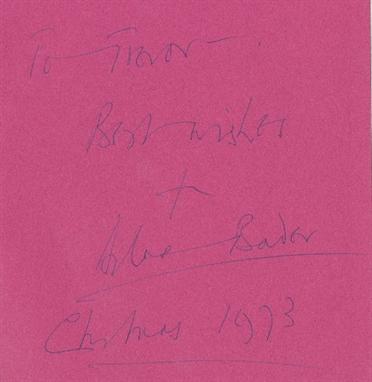 To Trevor
Best wishes
+
Bader
Christmas 1973